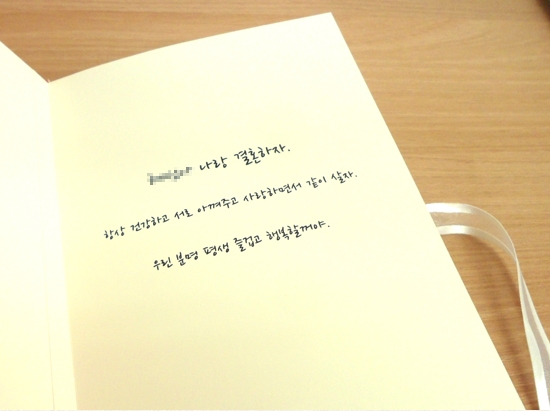 나랑 결혼하자.
항상 건강하고 서로 아껴주고 사랑하면서 같이 살자.
우린 분명 평생 즐겁고 행복할꺼야.